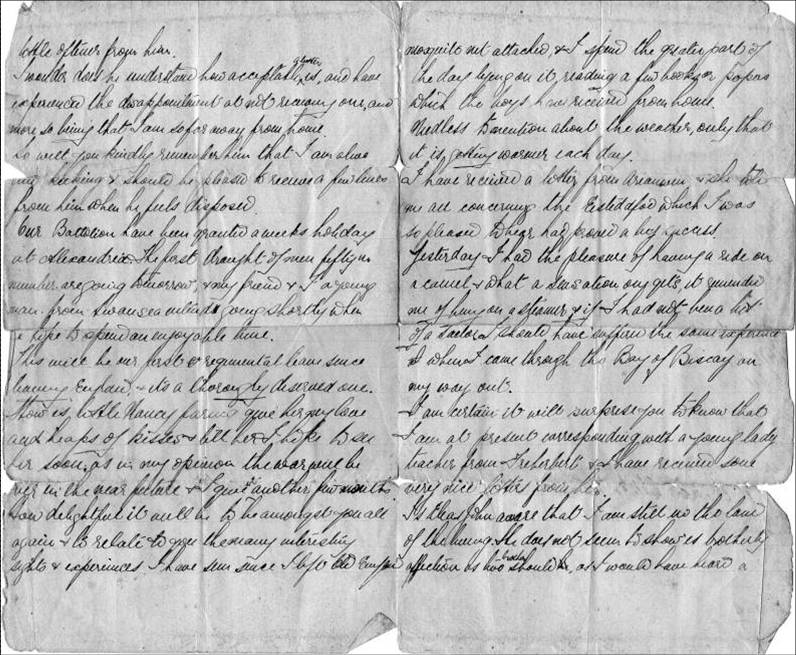 little oftener from him.
I wonder does he understand how acceptable a letter is, and have
experienced the disappointment at not receiving one, and
more so being that I am so far away from home.
So will you kindly remember him that I am alive
and kicking & should be pleased to receive a few lines
from him when he feels disposed.
Our Battalion have been granted a weeks holiday
at Alexandria. The first draught of men fifty in
number are going tomorrow, & my friend & I a young
man from Swansea intends going shortly when
I hope to spend an enjoyable time.
This will be our first regimental leave since
leaving England, & its a thoroughly deserved one.
How is little Nancy faring give her my love
and heaps of kisses & tell her I hope to see
her soon, as in my opinion the war will be
over in the near future & I give it another few months.
How delightful it will be to be amongst you all
again & to relate to you the many interesting
sights & experiences I have seen since I left old England
mosquito net attached, & I spend the greater part of
the day lying on it reading a few books or papers
which the boys have received from home.
Needless to mention about the weather, only that
it is getting warmer each day.
I have received a letter from & she told
me all concerning the Eisteddfod which I was
so pleased to hear had proved a big success.
Yesterday I had the pleasure of having a ride on
a camel & what a sensation one gets, it reminded
me of being on a steamer & if I had not been a bit
of a sailor I should have suffered the same experience
as when I came through the Bay of Biscay on
my way out.
I am certain it will surprise you to know that
I am at present corresponding with a young lady
teacher from Treherbert & I have received some
very nice letters from her.
Is Uncle John aware that I am still in the land
of the living. He does not seem to show is brotherly
affection as two brothers should be, as I would have heard a